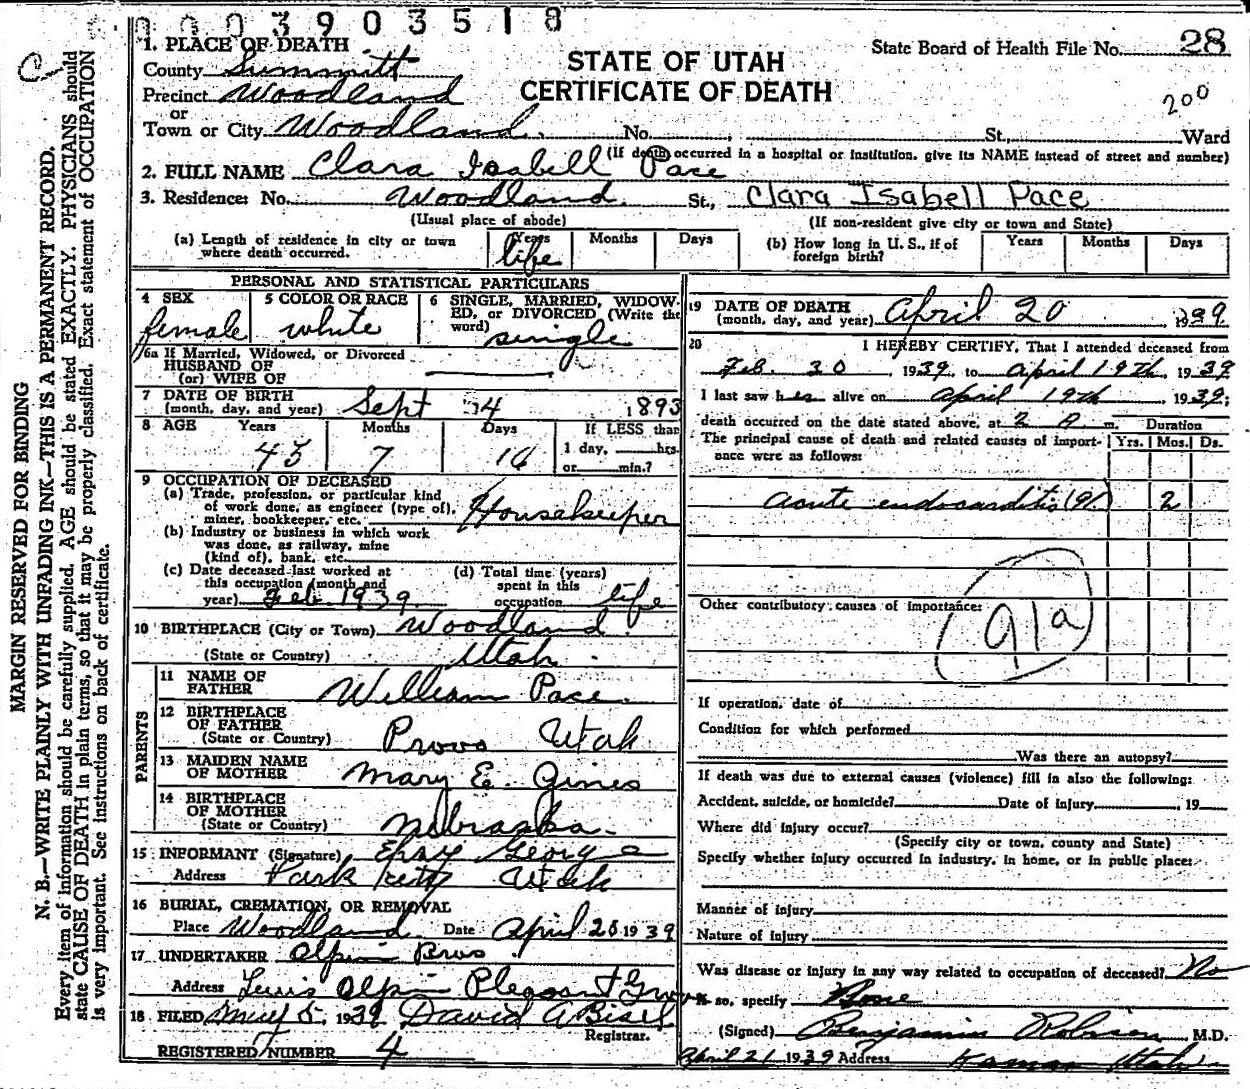 0003903518
1. PLACE OF DEATH
County Summitt
Precinct Woodland
or
Town or City Woodland. No. , St. Ward
STATE OF UTAH
CERTIFICATE OF DEATH
State Board of Health File No. 28
200
(If death occurred in a hospital or institution. give its NAME instead of street and number)
2. FULL NAME Clara Isabell Pace
3. Residence: No. Woodland. St., Clara Isabell Pace
(Usual place of abode) (If non-resident give city or town and State)
(a) Length of residence in city or town where death occurred. Years life Months Days
(b) How long in U. S., if of foreign birth? Years Months Days
PERSONAL AND STATISTICAL PARTICULARS
4 SEX female
5 COLOR OR RACE white
6 SINGLE, MARRIED, WIDOWED, or DIVORCED (Write the word) single
6a If Married, Widowed, or Divorced
HUSBAND OF
(or) WIFE OF
7 DATE OF BIRTH
(month, day, and year) Sept 4 1893
8 AGE Years 45 Months 7 Days 16
If LESS than
1 day, hrs.
or min.?
9 OCCUPATION OF DECEASED
(a) Trade, profession, or particular kind
of work done, as engineer (type of),
miner, bookkeeper, etc. Housekeeper
(b) Industry or business in which work
was done, as railway, mine
(kind of), bank, etc.
(c) Date deceased last worked at
this occupation (month and
year) Feb. 1939.
(d) Total time (years)
spent in this
occupation life
10 BIRTHPLACE (City or Town) Woodland.
(State or Country) Utah.
PARENTS
11 NAME OF
FATHER William Pace.
12 BIRTHPLACE
OF FATHER
(State or Country) Provo Utah
13 MAIDEN NAME
OF MOTHER Mary E. Gines
14 BIRTHPLACE
OF MOTHER
(State or Country) Nebraska.
15 INFORMANT (Signature) George
Address Park City Utah
16 BURIAL, CREMATION, OR REMOVAL
Place Woodland. Date April 1939
17 UNDERTAKER Olpin Bros.
Address Lewis Olpin Pleasant Grove
18 FILED May 5. 1939 David A
Registrar.
REGISTERED NUMBER 4
19 DATE OF DEATH
(month, day, and year) April 20 1939
20 I HEREBY CERTIFY, That I attended deceased from
Feb. 30, 1939, to April 19th, 1939
I last saw her alive on April 19th, 1939;
death occurred on the date stated above, at 2 A m.
The principal cause of death and related causes of importance were as follows:
Duration
Yrs. Mos. Ds.
acute endocarditis (91.) 2
Other contributory causes of importance:
91a
If operation, date of
Condition for which performed
Was there an autopsy?
If death was due to external causes (violence) fill in also the following:
Accident, suicide, or homicide? Date of injury , 19
Where did injury occur?
(Specify city or town, county and State)
Specify whether injury occurred in industry, in home, or in public place:
Manner of Injury
Nature of Injury
Was disease or injury in any way related to occupation of deceased? No
If so, specify
(Signed) Benjamin Robison, M.D.
April 21 1939 Address Kamas Utah
MARGIN RESERVED FOR BINDING
N. B.—WRITE PLAINLY WITH UNFADING INK—THIS IS A PERMANENT RECORD.
Every item of information should be carefully supplied. AGE should be stated EXACTLY. PHYSICIANS should
state CAUSE OF DEATH in plain terms, so that it may be properly classified. Exact statement of OCCUPATION
is very important. See instructions on back of certificate.